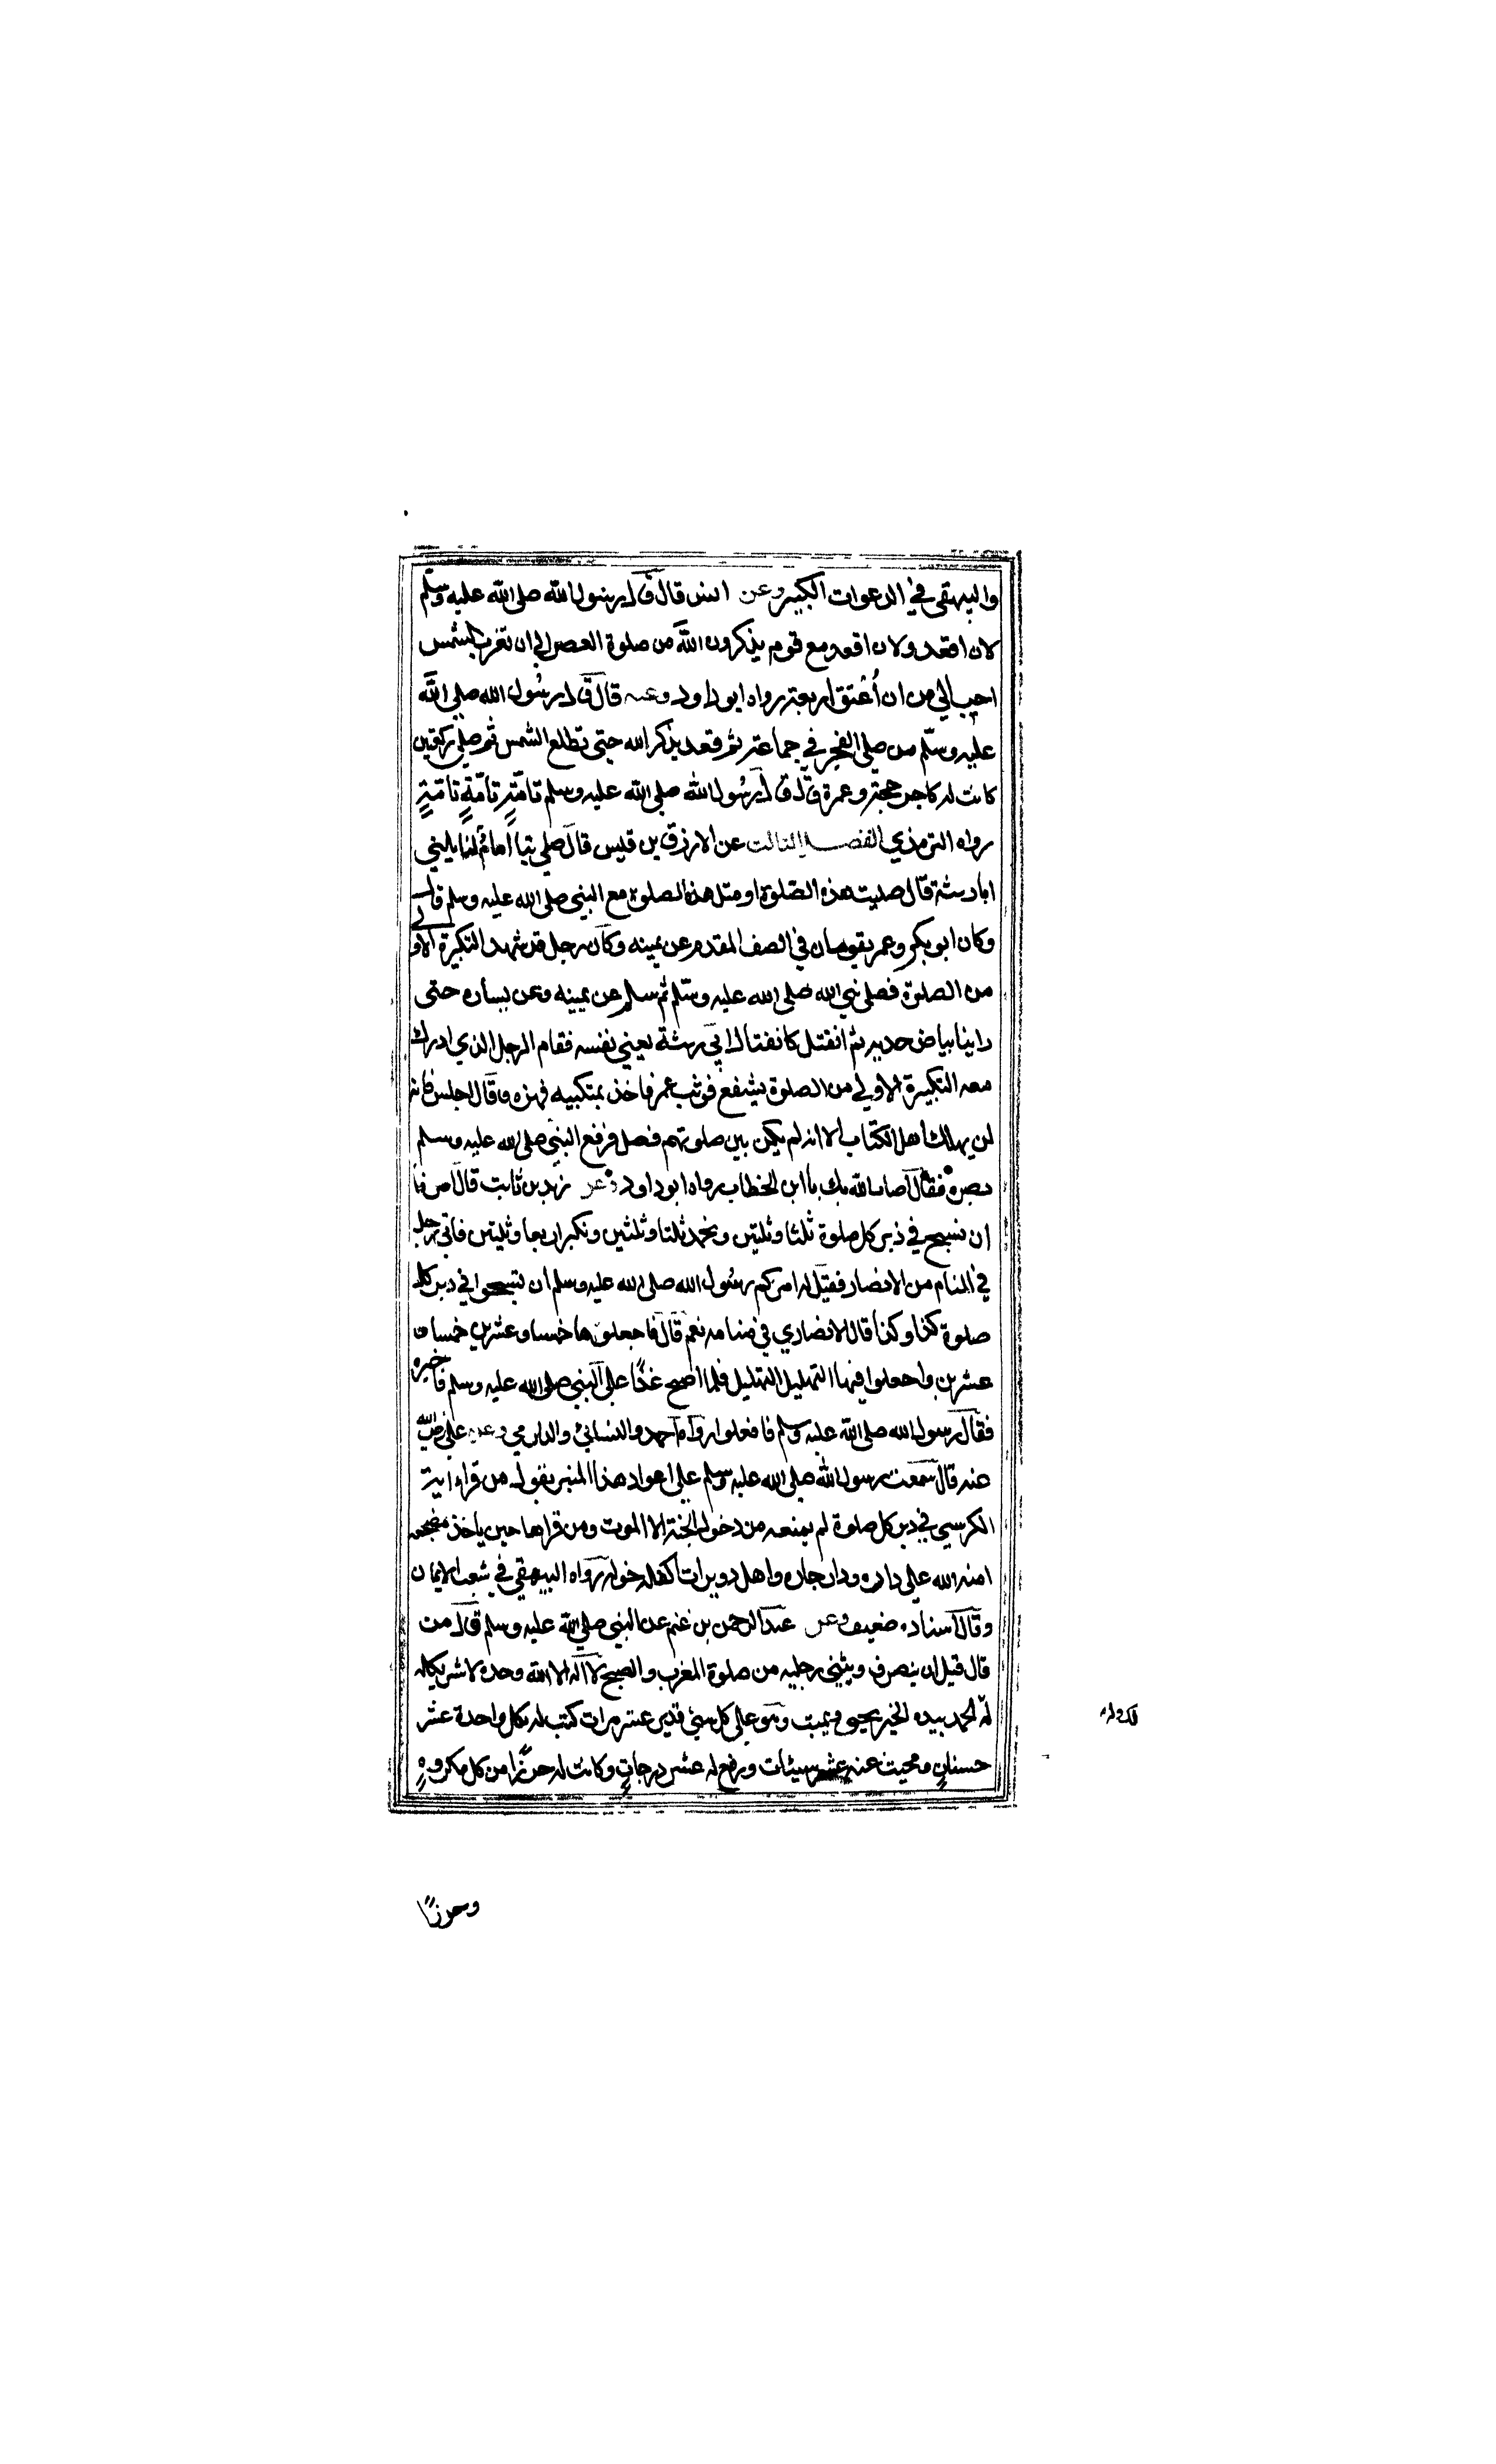 والبيهقي في الدعوات الكبير وعن انس قال قال رسول الله صلى الله عليه وسلم
لان اقعد ولان اقعد مع قوم يذكرون الله من صلوة العصر الى ان تغرب الشمس
احب الي من ان أعتق اربعة رواه ابو داود وعنه قال قال رسول الله صلى الله
عليه وسلم من صلى الفجر في جماعة ثم قعد يذكر الله حتى تطلع الشمس ثم صلى ركعتين
كانت له كاجر حجة وعمرة قال قال رسول الله صلى الله عليه وسلم تامّةٍ تامّةٍ تامّةٍ
رواه الترمذي الفصل الثالث عن الازرق بن قيس قال صلى بنا امام لنا يكنى
ابا رمثة قال صليت هذه الصلوة او مثل هذه الصلوة مع النبي صلى الله عليه وسلم قال
وكان ابو بكر وعمر يقومان في الصف المقدم عن يمينه وكان رجل قد شهد التكبيرة الاولى
من الصلوة فصلى نبي الله صلى الله عليه وسلم ثم سلم عن يمينه وعن يساره حتى
راينا بياض خديه ثم انفتل كانفتال ابي رمثة يعني نفسه فقام الرجل الذي ادرك
معه التكبيرة الاولى من الصلوة يشفع فوثب عمر فاخذ بمنكبيه فهزه فقال اجلس فانه
لن يهلك اهل الكتاب الا انه لم يكن بين صلوتهم فصل فرفع النبي صلى الله عليه وسلم
بصره فقال اصاب الله بك يا ابن الخطاب رواه ابو داود وعن زيد بن ثابت قال امرنا
ان نسبح في دبر كل صلوة ثلثا وثلثين ونحمد ثلثا وثلثين ونكبر اربعا وثلثين فاتي رجل
في المنام من الانصار فقيل له امركم رسول الله صلى الله عليه وسلم ان تسبحوا في دبر كل
صلوة كذا وكذا قال الانصاري في منامه نعم قال فاجعلوها خمسا وعشرين خمسا و
عشرين واجعلوا فيها التهليل التهليل فلما اصبح غدًا على النبي صلى الله عليه وسلم فاخبره
فقال رسول الله صلى الله عليه وسلم فافعلوا رواه احمد والنسائي والدارمي وعن علي رضي الله
عنه قال سمعت رسول الله صلى الله عليه وسلم على اعواد هذا المنبر يقول من قراء اية
الكرسي في دبر كل صلوة لم يمنعه من دخول الجنة الا الموت ومن قراها حين ياخذ مضجعه
امنه الله على داره ودار جاره واهل دويرات حوله رواه البيهقي في شعب الايمان
وقال اسناده ضعيف وعن عبد الرحمن بن غنم عن النبي صلى الله عليه وسلم قال من
قال قبل ان ينصرف ويثني رجليه من صلوة المغرب والصبح لا اله الا الله وحده لا شريك له
له الحمد بيده الخير يحيي ويميت وهو على كل شيء قدير عشر مرات كتب له بكل واحدة عشر
حسناتٍ ومحيت عنه عشر سيئات ورفع له عشر درجاتٍ وكانت له حرزًا من كل مكروهٍ
وحرزًا